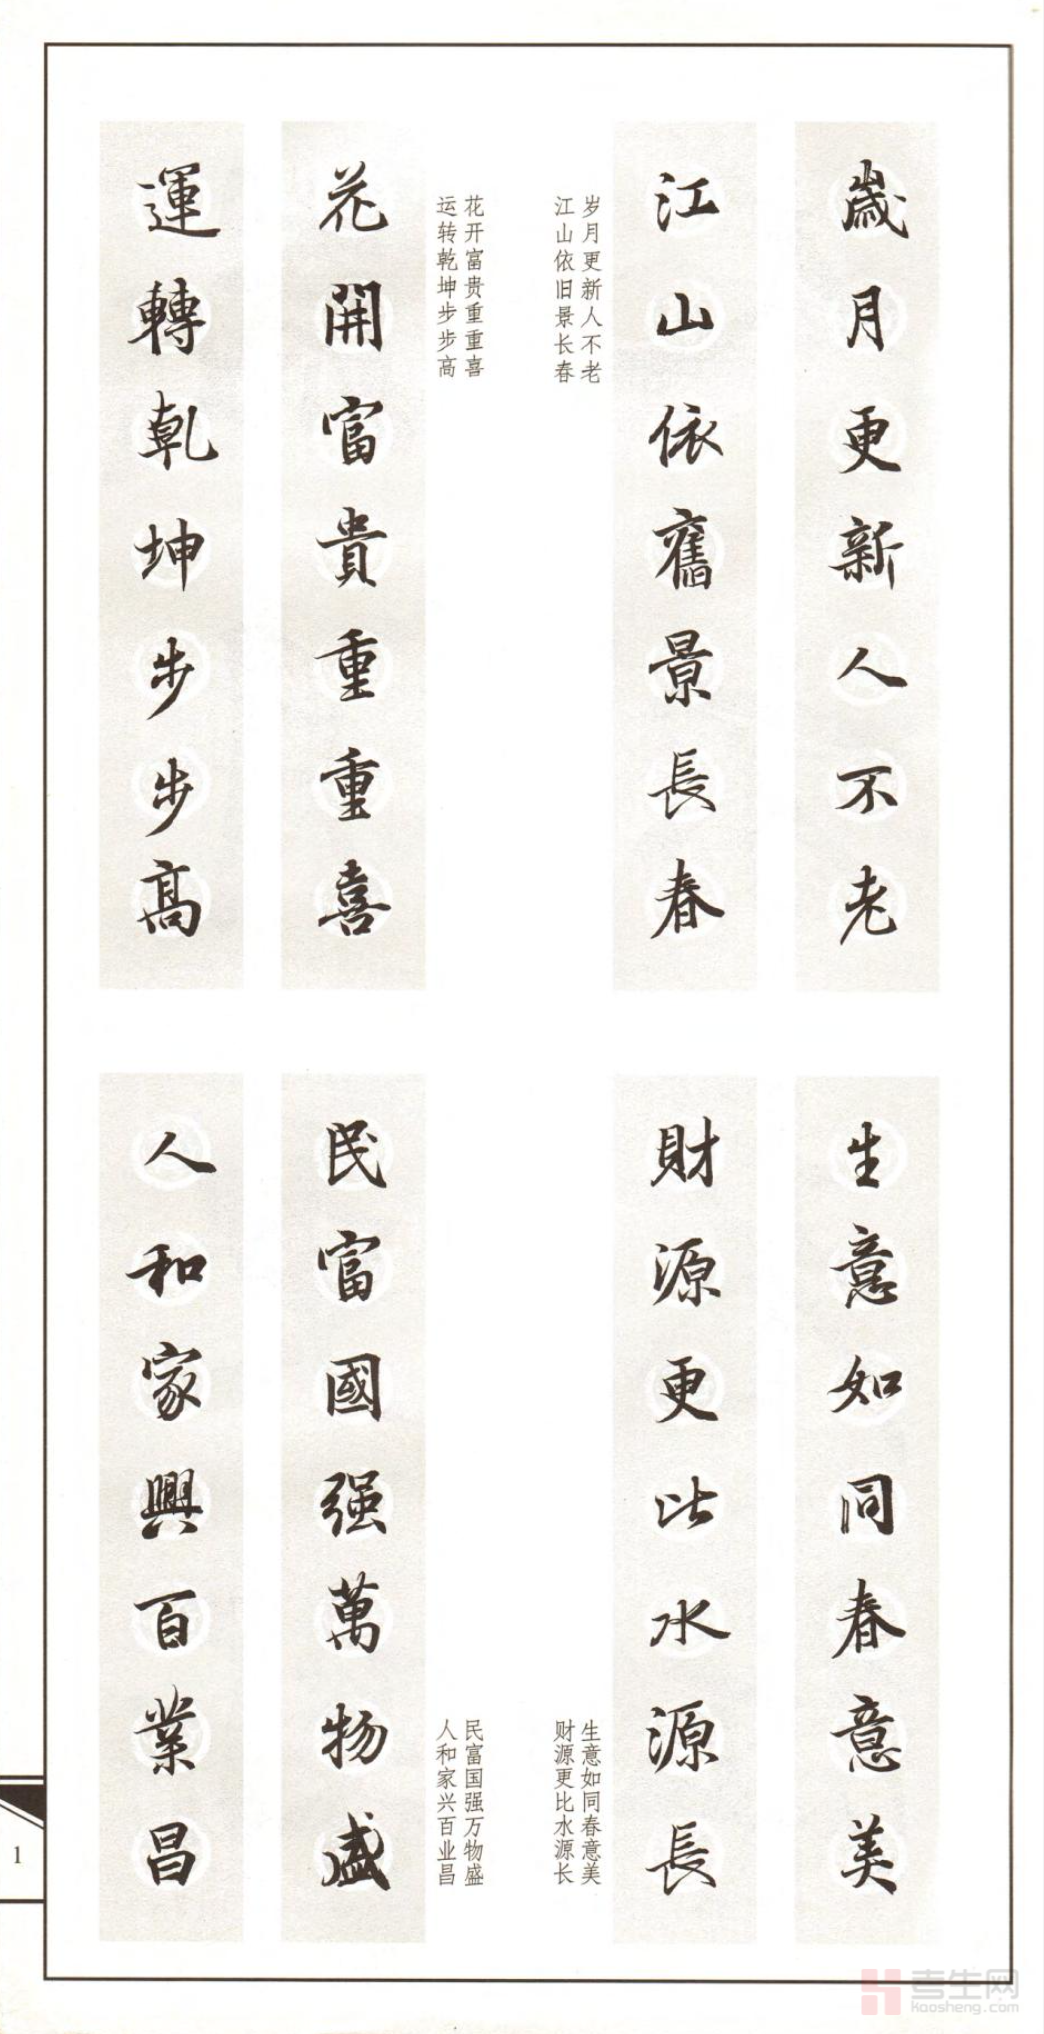 歲月更新人不老
江山依舊景長春
岁月更新人不老
江山依旧景长春
花開富貴重重喜
運轉乾坤步步高
花开富贵重重喜
运转乾坤步步高
生意如同春意美
財源更比水源長
生意如同春意美
财源更比水源长
民富國强萬物盛
人和家興百業昌
民富国强万物盛
人和家兴百业昌
1
考生网
kaosheng.com